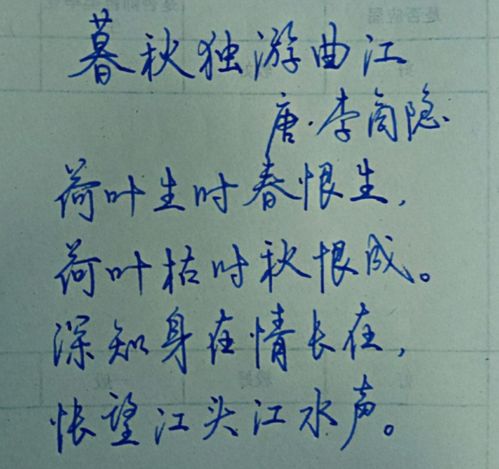 暮秋独游曲江
唐·李商隐
荷叶生时春恨生，
荷叶枯时秋恨成。
深知身在情长在，
怅望江头江水声。